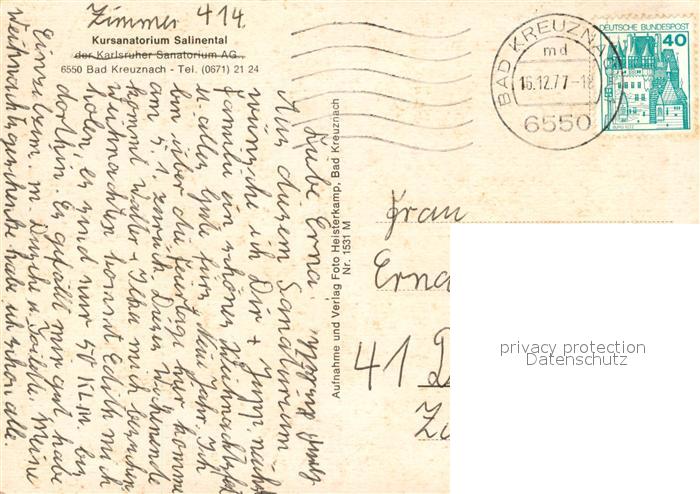 Zimmer 414
Kursanatorium Salinental
der Karlsruher Sanatorium AG.
6550 Bad Kreuznach - Tel. (0671) 21 24
Liebe Erna,
Aus diesem Sanatorium
wünsche ich Dir + Jupp nebst
Familie ein schönes Weihnachtsfest
u. alles Gute fürs Neue Jahr. Ich
bin über die Feiertage hier komme
am 5.1 zurück Dieses Wochenende
kommt Walter + Ilka mich besuchen
Weihnachten kommt Edith mich
holen, es sind nur 50 KLM. bis
dorthin. Es gefällt mir gut habe
Einzelzimm. m. Dusche u. Toilette. Meine
Weihnachtsgeschenke habe ich schon alle.
Aufnahme und Verlag Foto Heisterkamp, Bad Kreuznach
Nr. 1531 M
BAD KREUZNACH
md
16.12.77-18
6550
DEUTSCHE BUNDESPOST
40
BURG ELTZ
Frau
Erna
41 D
privacy protection
Datenschutz